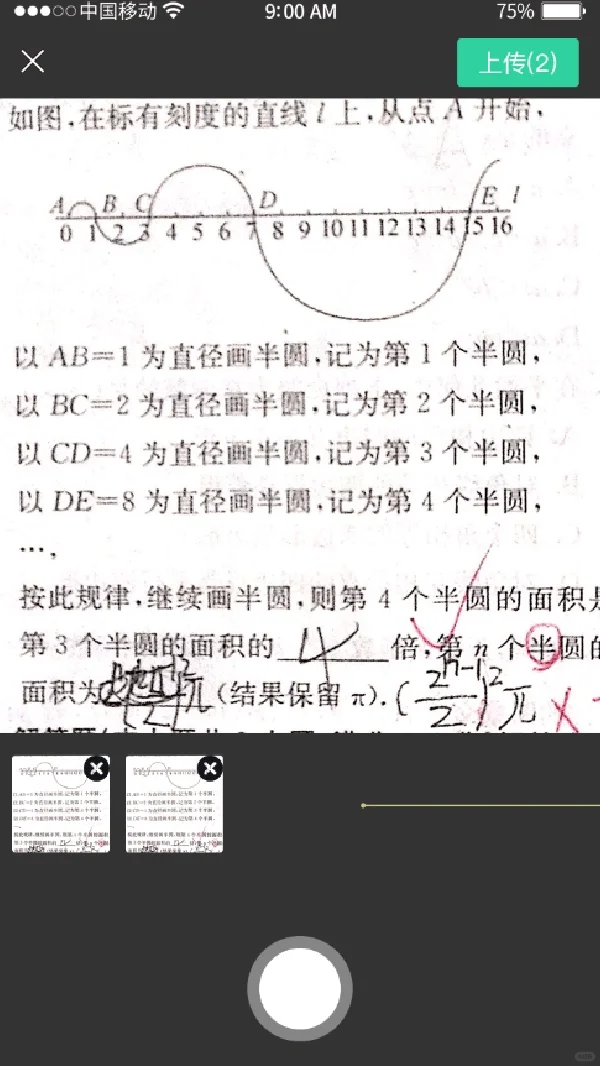 中国移动 9:00 AM 75%
上传(2)
如图,在标有刻度的直线 l 上,从点 A 开始,
A B C D E l
0 1 2 3 4 5 6 7 8 9 10 11 12 13 14 15 16
以 AB=1 为直径画半圆,记为第 1 个半圆,
以 BC=2 为直径画半圆,记为第 2 个半圆,
以 CD=4 为直径画半圆,记为第 3 个半圆,
以 DE=8 为直径画半圆,记为第 4 个半圆,
…,
按此规律,继续画半圆,则第 4 个半圆的面积是
第 3 个半圆的面积的 4 倍,第 n 个半圆的
面积为 π (结果保留 π). (2^(n-1)/2)^2 π